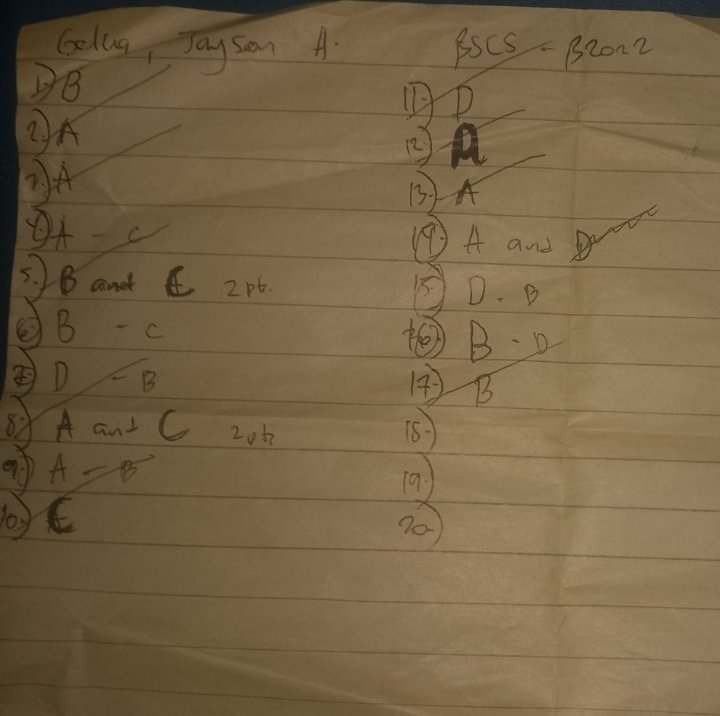 Jayson A. BSCS - B2022
1) B
2.) A
3.) A
4.) A - C
5.) B and C 2 pt.
6.) B - C
7.) D - B
8.) A and C 2 pts
9.) A - B
10.) C
11.) D
12.)
13.) A
14.) A and D
15.) D - B
16.) B - D
17.) B
18.)
19.)
20.